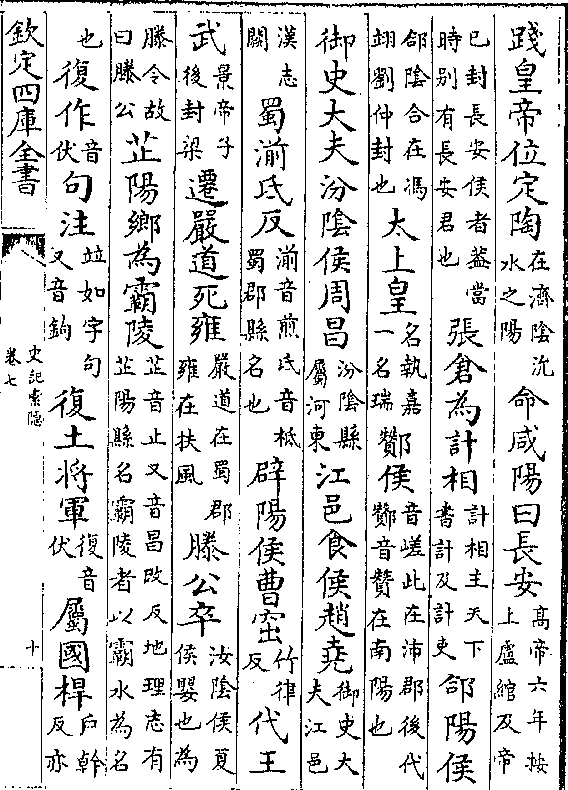 踐皇帝位定陶在濟陰氿水之陽命咸陽曰長安髙帝六年按上盧綰及帝
已封長安侯者葢當時别有長安君也張倉為計相計相主天下書計及計吏郃陽侯
郃陰合在馮翊劉仲封也太上皇名執嘉一名瑞酇侯音嵯此在沛郡後代酇音贊在南陽也
御史大夫汾陰侯周昌汾陰縣屬河東江邑食侯趙堯御史大夫江邑
漢志闕蜀湔氐反湔音煎氐音柢蜀郡縣名也辟陽侯曹窋竹律反代王
武景帝子後封梁遷嚴道死雍嚴道在蜀郡雍在扶風滕公卒汝陰侯夏侯嬰也為
滕令故曰滕公芷陽鄉為霸陵芷音止又音昌改反地理志有芷陽縣名霸陵者以霸水為名
也復作音伏句注竝如字句又音鉤復土將軍復音伏屬國桿戶幹反亦
欽定四庫全書
史記索隱
卷七
十